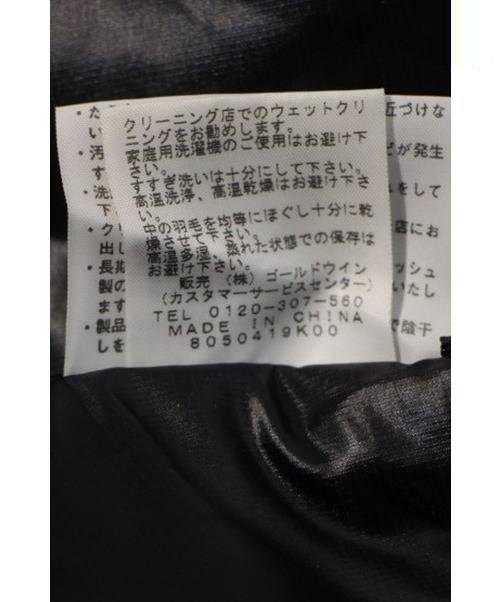 クリーニング店でのウェットクリ
ーニングをお勧めします。
家庭用洗濯機のご使用はお避け下
さい。
すすぎ洗いは十分にして下さい。
高温洗浄、高温乾燥はお避け下さ
い。
中の羽毛を均等にほぐし十分に乾
燥させて下さい。
高温多湿、蒸れた状態での保存は
お避け下さい。
販売 (株) ゴールドウイン
(カスタマーサービスセンター)
TEL 0120-307-560
MADE IN CHINA
8050419K00
・汚
・洗
・クリ
出し
・長期
製の
ます
・製品
しを
近づけな
が発生
をして
店にお
ッシュ
いたし
で陰干